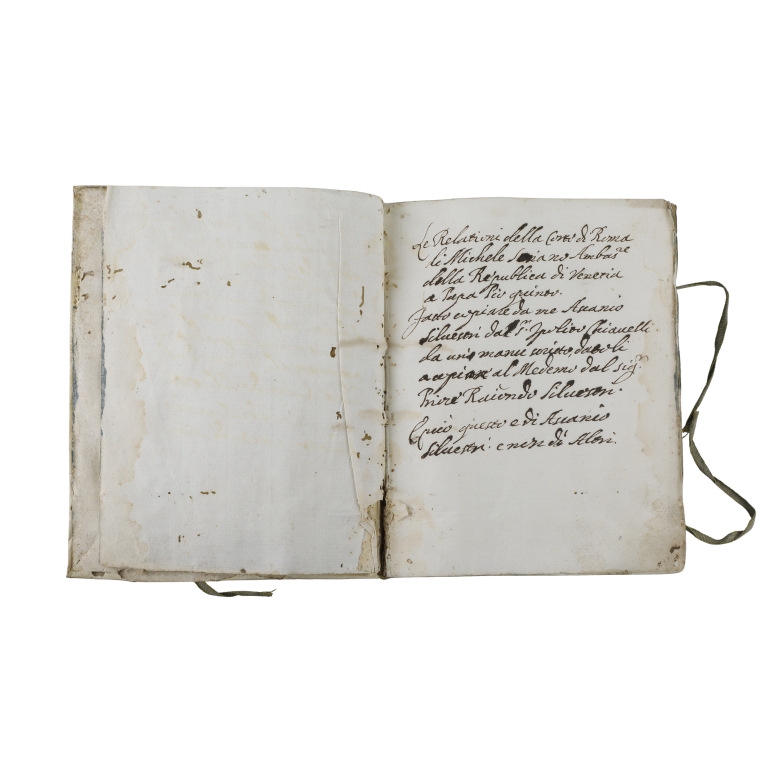 Le Relationi della Corte di Roma
di Michele Soriano Ambas.re
della Republica di Veneria
a Papa Pio quinto.
fatto copiare da me Ascanio
Silvestri dal S.r Ipolito Chiavelli
da un manuscritto, datoli
a copiare al Medemo dal Sig.r
Priore Raimondo Silvestri.
E più questo e di Ascanio
Silvestri. e non di Altri.